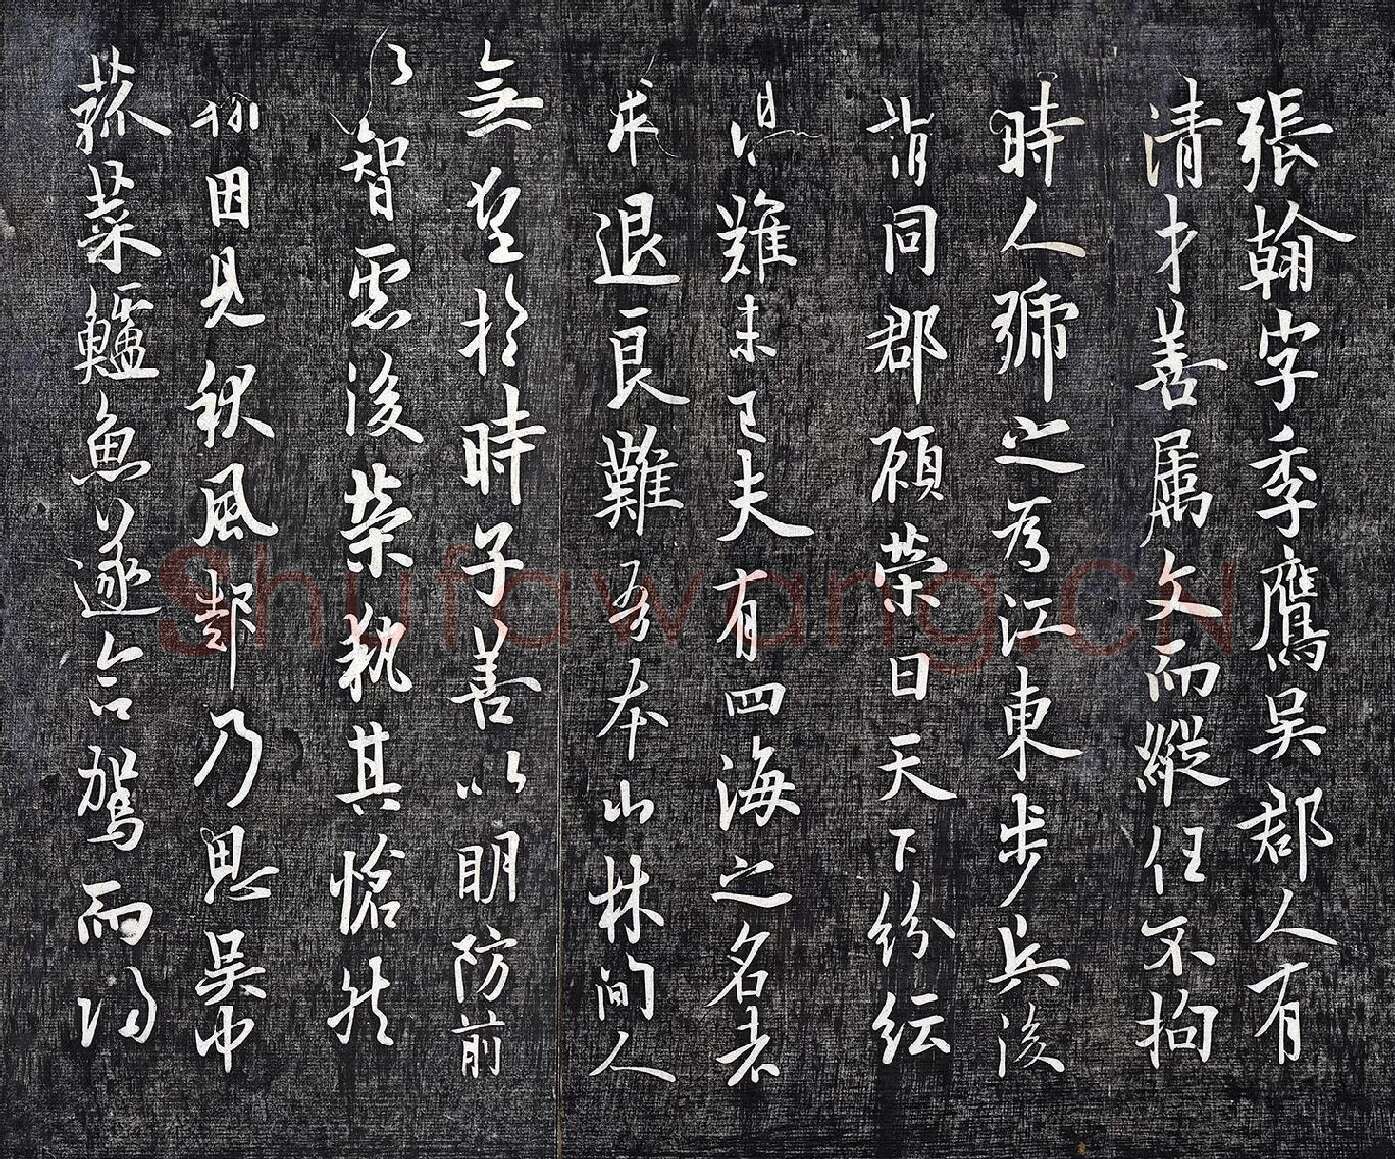 張翰字季鷹吳郡人有
清才善属文而縱任不拘
時人號之為江東步兵後
謂同郡顧榮曰天下紛紜
難未已夫有四海之名者
求退良難吾本山林間人
無望於時子善以明防前
以智慮後榮執其愴然
翰因見秋風起乃思吳中
菰菜鱸魚遂命駕而歸
Shufawang.CN